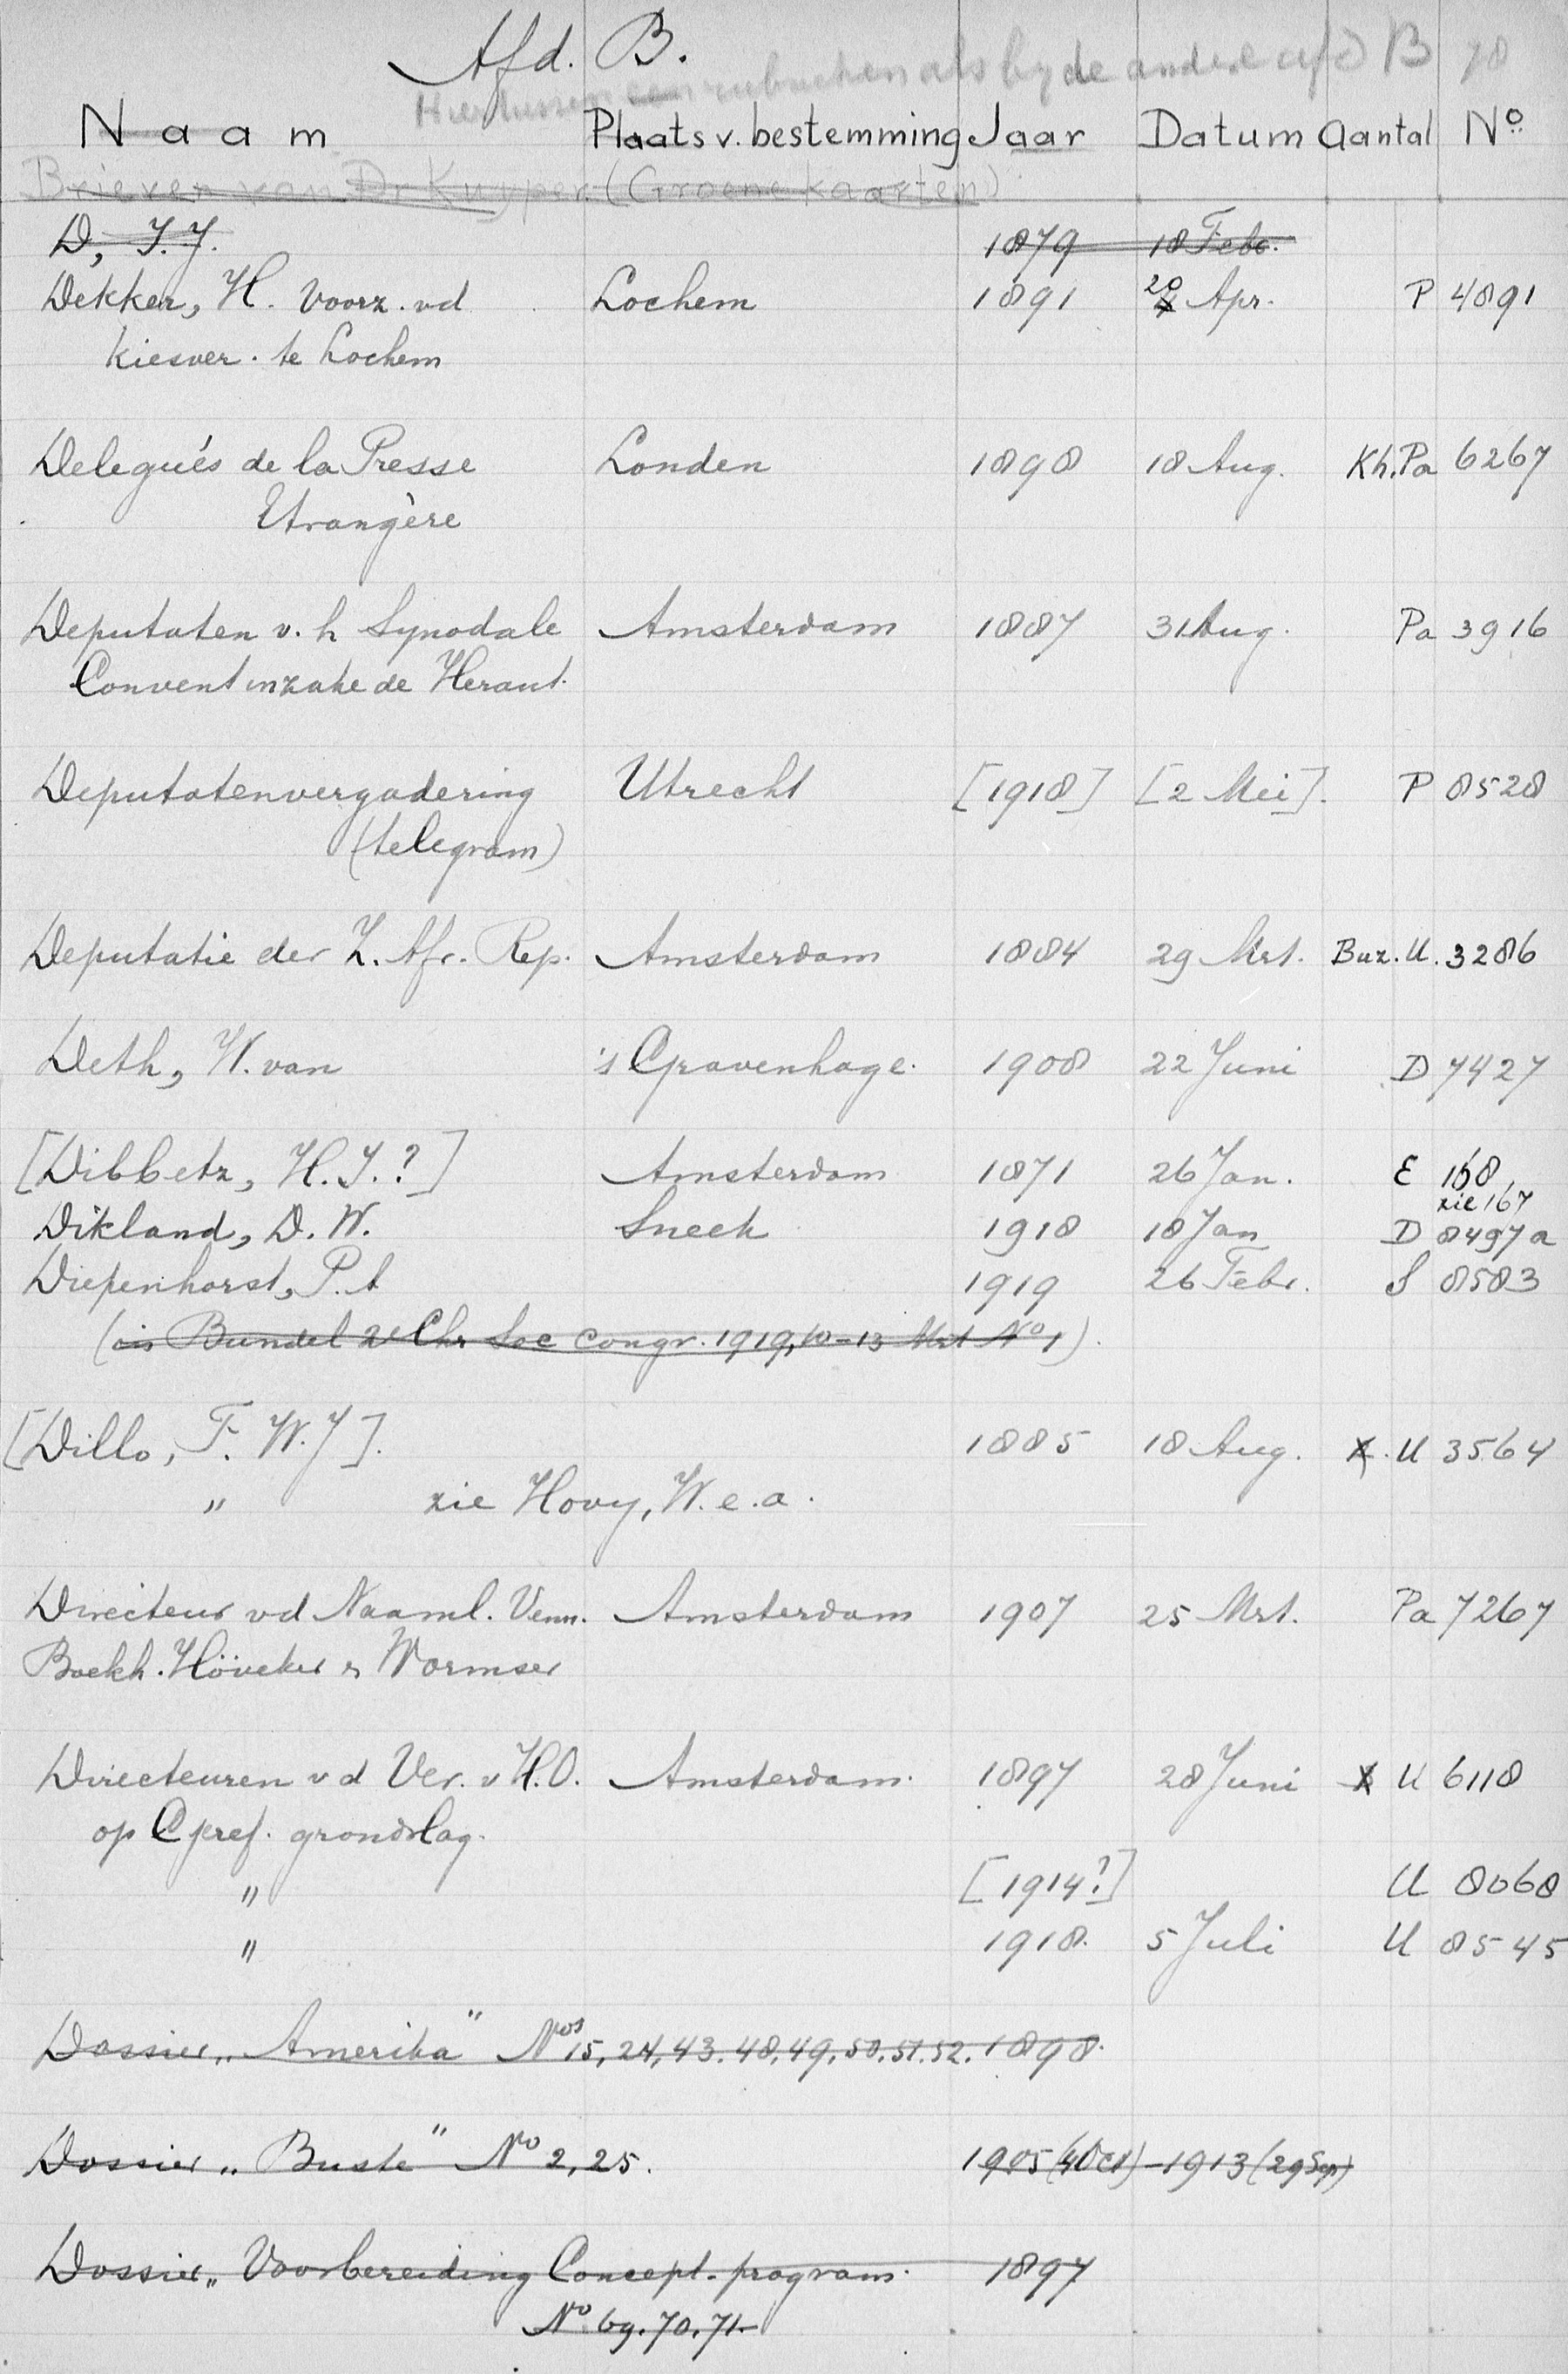 Afd. B.
als by de andere afd B 78
Naam Plaats v. bestemming Jaar Datum Aantal No.
Brieven van Dr Kuyper (Groene kaarten)
D, J.J. 1879 18 Febr.
Dekker, H. Voorz. vd Lochem 1891 20 Apr. P 4891
Kiesver. te Lochem
Delegués de la Presse Londen 1898 18 Aug. Kh. Pa 6267
Etrangère
Deputaten v. h Synodale Amsterdam 1887 31 Aug. Pa 3916
Convent inzake de Heraut.
Deputatenvergadering Utrecht [1918] [2 Mei]. P 8528
(telegram)
Deputatie der Z. Afr. Rep. Amsterdam 1884 29 Mrt. Buz. U. 3286
Deth, W. van 's Gravenhage. 1908 22 Juni D 7427
[Dibbetz, H.J.?] Amsterdam 1871 26 Jan. E 168
zie 167
Dikland, D. W. Sneek 1918 18 Jan D 8497a
Diepenhorst, P.A 1919 26 Febr. S 8583
(in Bundel 2e Chr Soc Congr. 1919, 10-13 Mrt No 1).
[Dillo, F. W. J]. 1885 18 Aug. X. U 3564
" zie Hovy, W. e. a.
Directeur vd Naaml. Venn. Amsterdam 1907 25 Mrt. Pa 7267
Boekh. Höveker & Wormser
Directeuren v d Ver. v H.O. Amsterdam. 1897 28 Juni X U 6118
op Geref. grondslag.
" [1914?] U 8068
" 1918. 5 Juli U 8545
Dossier „Amerika" Nos 15, 24, 43. 48, 49, 50. 51. 52. 1898.
Dossier „Buste" No 2, 25. 1905 (4 Oct) - 1913 (29 Sep)
Dossier „Voorbereiding Concept-program. 1897
No 69. 70. 71-